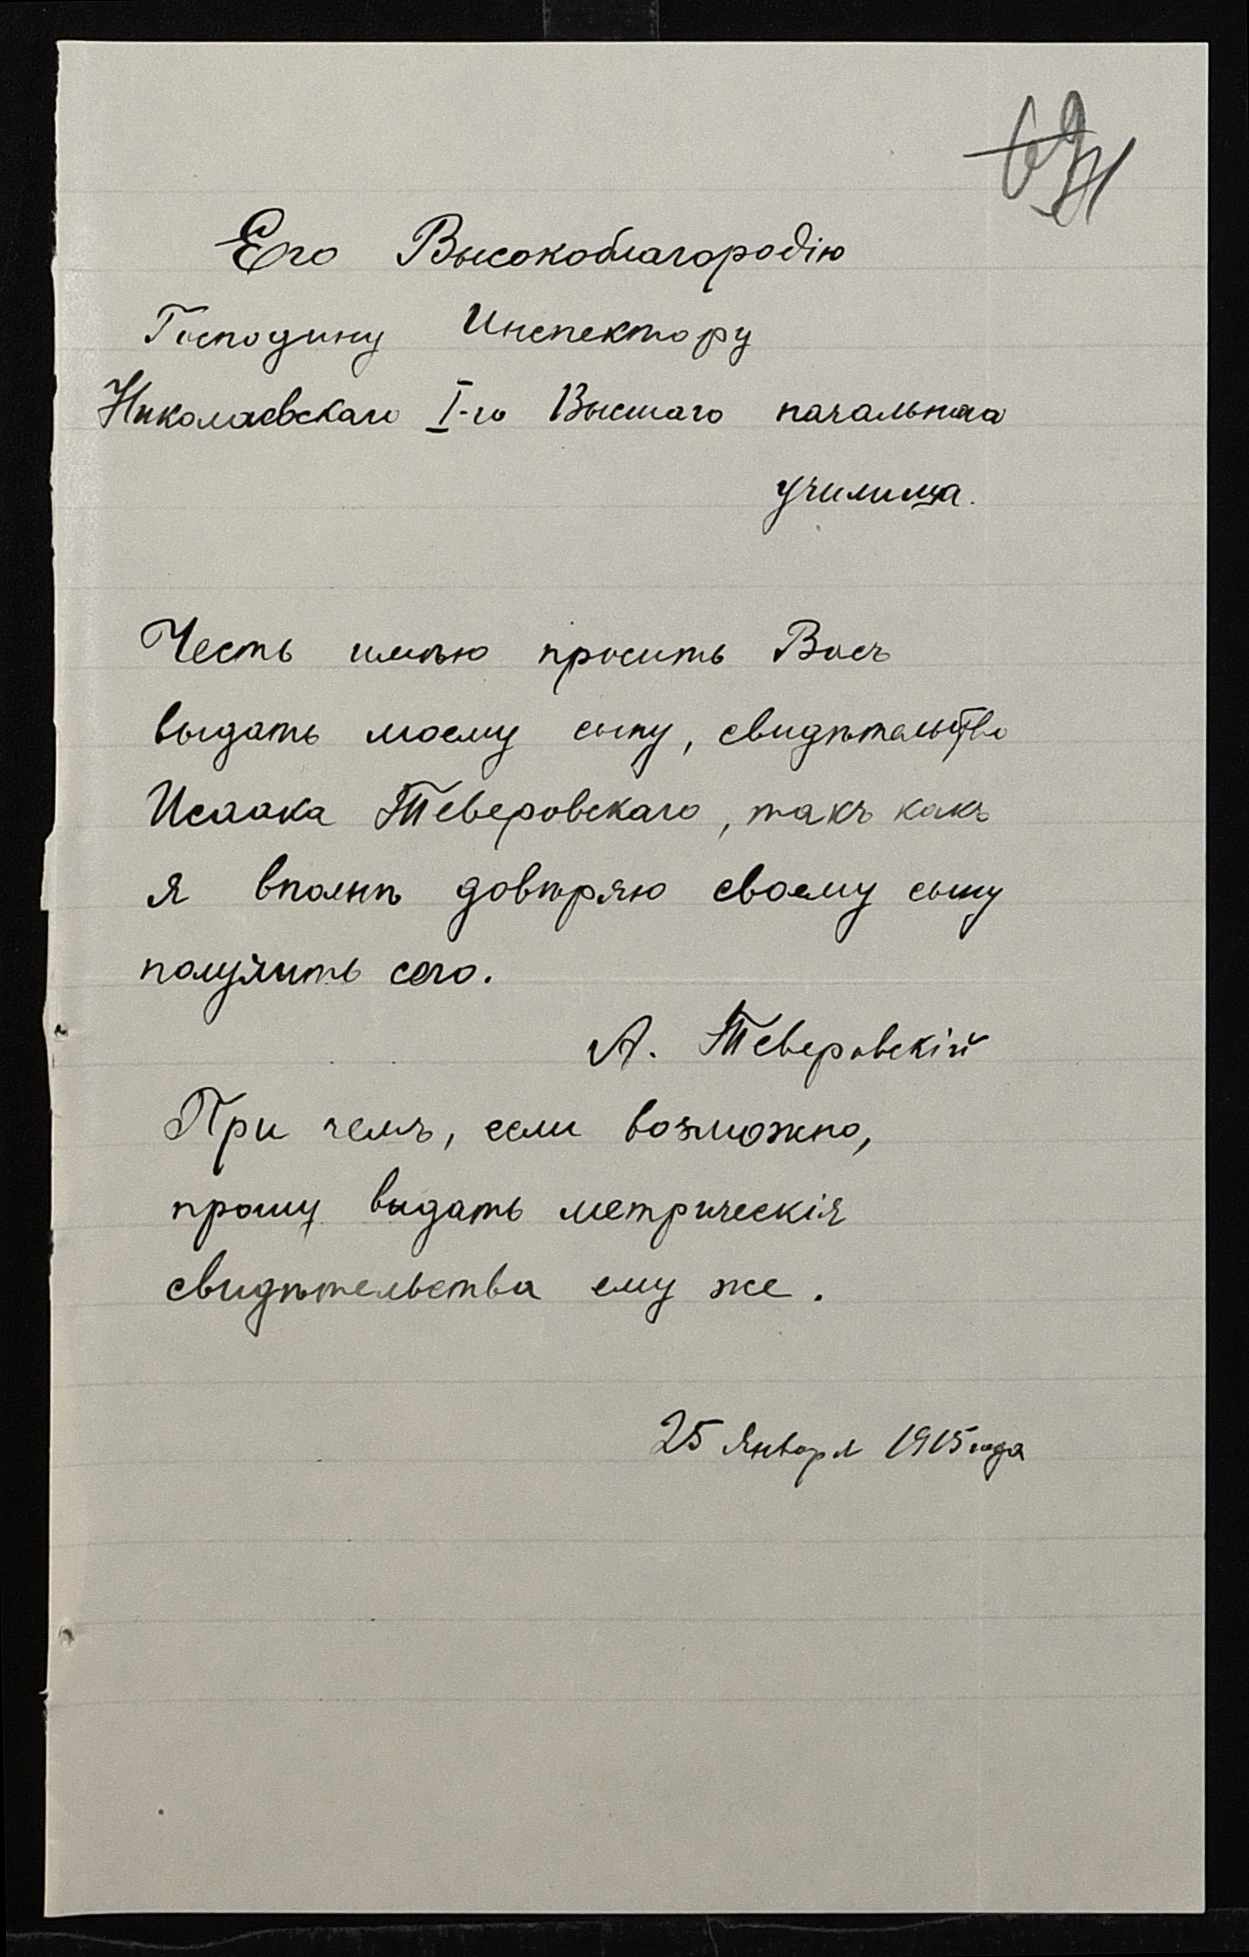 Его Высокоблагородію
Господину Инспектору
Николаевскаго I-го Высшаго начальнаго
училища.
Честь имѣю просить Васъ
выдать моему сыну, свидѣтельство
Исаака Тверовскаго, такъ какъ
я вполнѣ довѣряю своему сыну
получить сего.
А. Теверовскій
При чемъ, если возможно,
прошу выдать метрическія
свидѣтельства ему же.
25 Января 1915 года